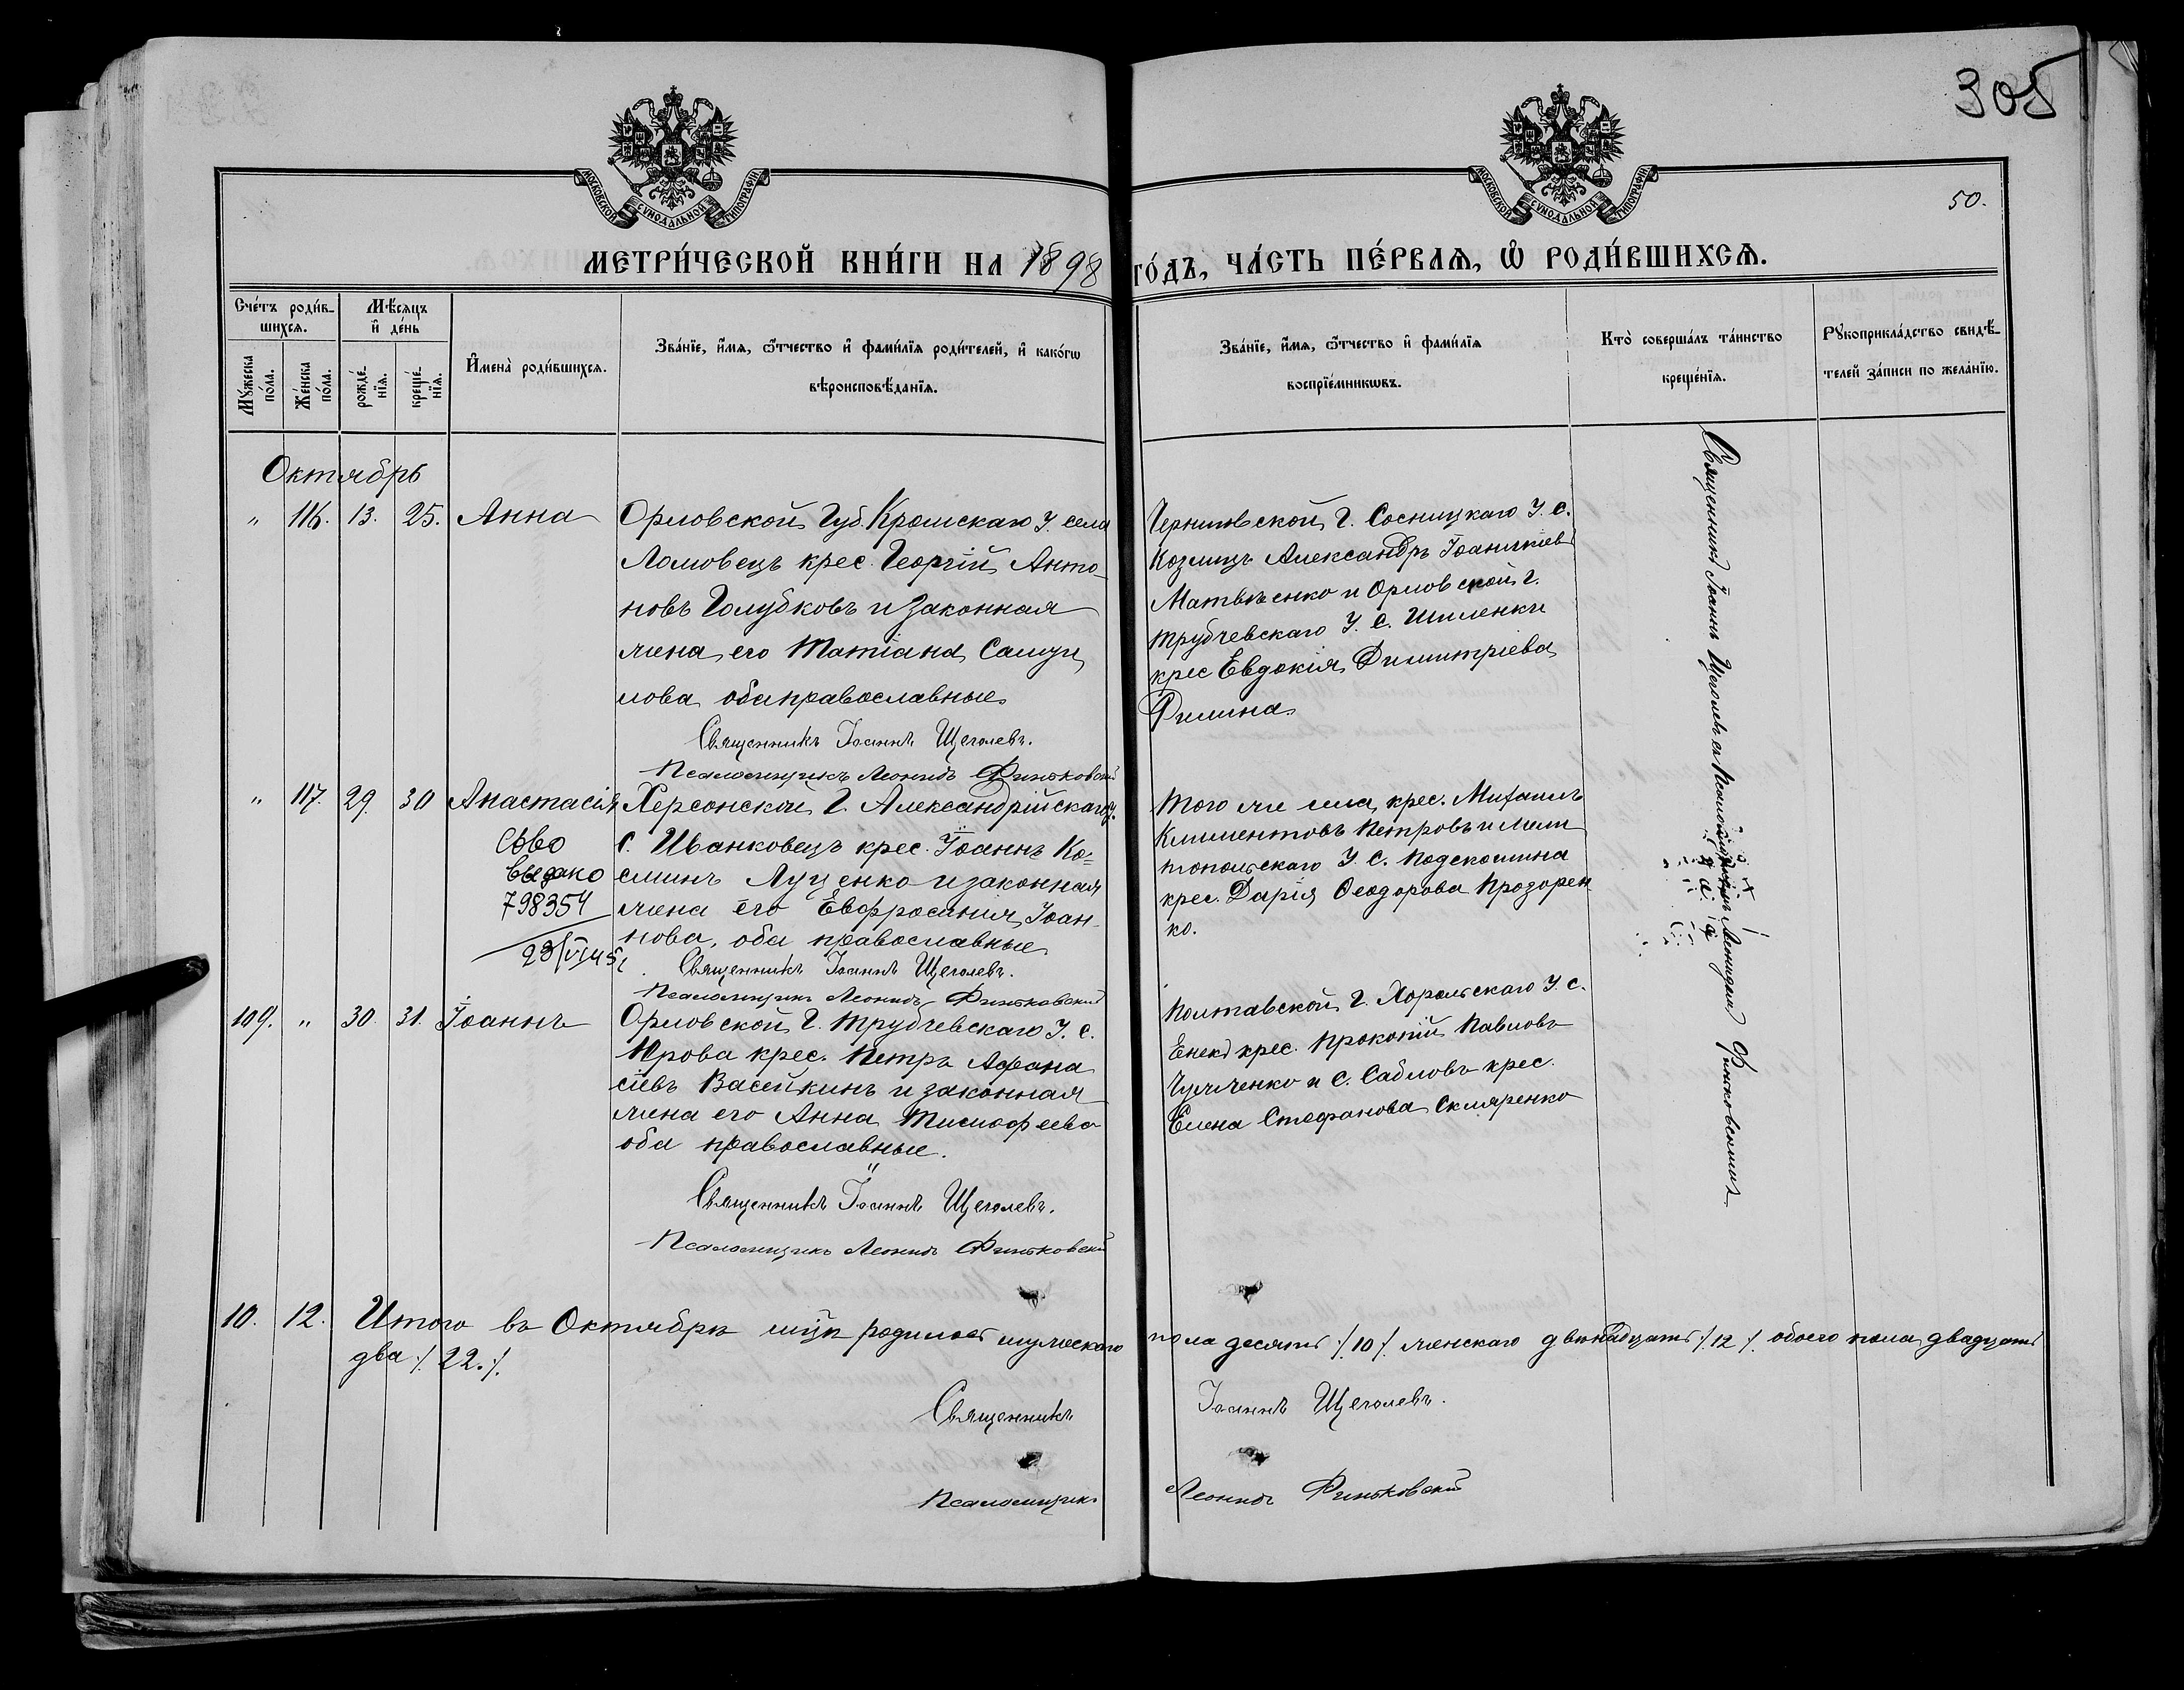 305
50.
МОСКОВСКОЙ СѴНОДАЛЬНОЙ ТИПОГРАФІИ
МОСКОВСКОЙ СѴНОДАЛЬНОЙ ТИПОГРАФІИ
МЕТРИ́ЧЕСКОЙ КНИ́ГИ НА 1898 ГО́ДЪ, ЧА́СТЬ ПЕ́РВАѦ, Ѡ РОДИ́ВШИХСѦ.
Сче́тъ роди́в-
шихсѧ.
Мꙋ́жеска по́ла.
Же́нска по́ла.
Мѣ́сѧцъ и҆ де́нь
рожде́нїѧ.
креще́нїѧ.
И҆мена̀ роди́вшихсѧ.
Зва́нїе, и҆́мѧ, ѻ҆́тчество и҆ фами́лїѧ роди́телей, и҆ како́гѡ
вѣроисповѣ́данїѧ.
Зва́нїе, и҆́мѧ, ѻ҆́тчество и҆ фами́лїѧ
воспрїе́мникѡвъ.
Кто̀ соверша́лъ та́инство
креще́нїѧ.
Рꙋкоприкла́дство свидѣ́-
телей за́писи по жела́нїю.
Октябрь
" 116. 13. 25. Анна
Орловской Губ. Кромскаго У. села
Ломовецъ крес. Георгій Анто-
новъ Голубковъ и законная
жена его Татіана Самуи
лова оба православные
Священникъ Іоаннъ Щеголевъ.
Псаломщикъ Леонидъ Финьковскій
Черниговской Г. Сосницкаго У. с.
Александръ Іоанникіевъ
Матвѣенко и Орловской Г.
Трубчевскаго У. С. Шиленки
крес Евдокія Димитріева
Филина
" 117. 29. 30 Анастасія
Сѳво
выдано
798354
Херсонской Г. Александрійскаго У.
С. Иванковецъ крес. Іоаннъ Ко=
сминъ Луценко и законная
жена его Евфросинія Іоан-
нова, оба православные
Священникъ Іоаннъ Щеголевъ.
Псаломщикъ Леонидъ Финьковскій
Того же села крес. Михаилъ
Климентовъ Петровъ и Мели
топольскаго У. С. Подскошина
крес. Дарія Ѳеодорова Прозорен
ко.
109. " 30. 31. Іоаннъ
Орловской Г. Трубчевскаго У. с.
Юрова крес. Петръ Афана
сіевъ Васейкинъ и законная
жена его Анна Тимофеева
оба православные.
Священникъ Іоаннъ Щеголевъ.
Псаломщикъ Леонидъ Финьковскій
Полтавской Г. Хорольскаго У. с.
крес. Прокопій Павловъ
и С. крес.
Елена Стефанова Скляренко
Священникъ Іоаннъ Щеголевъ съ Псаломщикомъ Леонидомъ Финьковскимъ
10. 12. Итого въ Октябрѣ мцѣ родилось мужескаго пола десять /.10/. женскаго двѣнадцать /.12/. обоего пола двадцать
два /.22./.
Священникъ Іоаннъ Щеголевъ.
Псаломщикъ Леонидъ Финьковскій